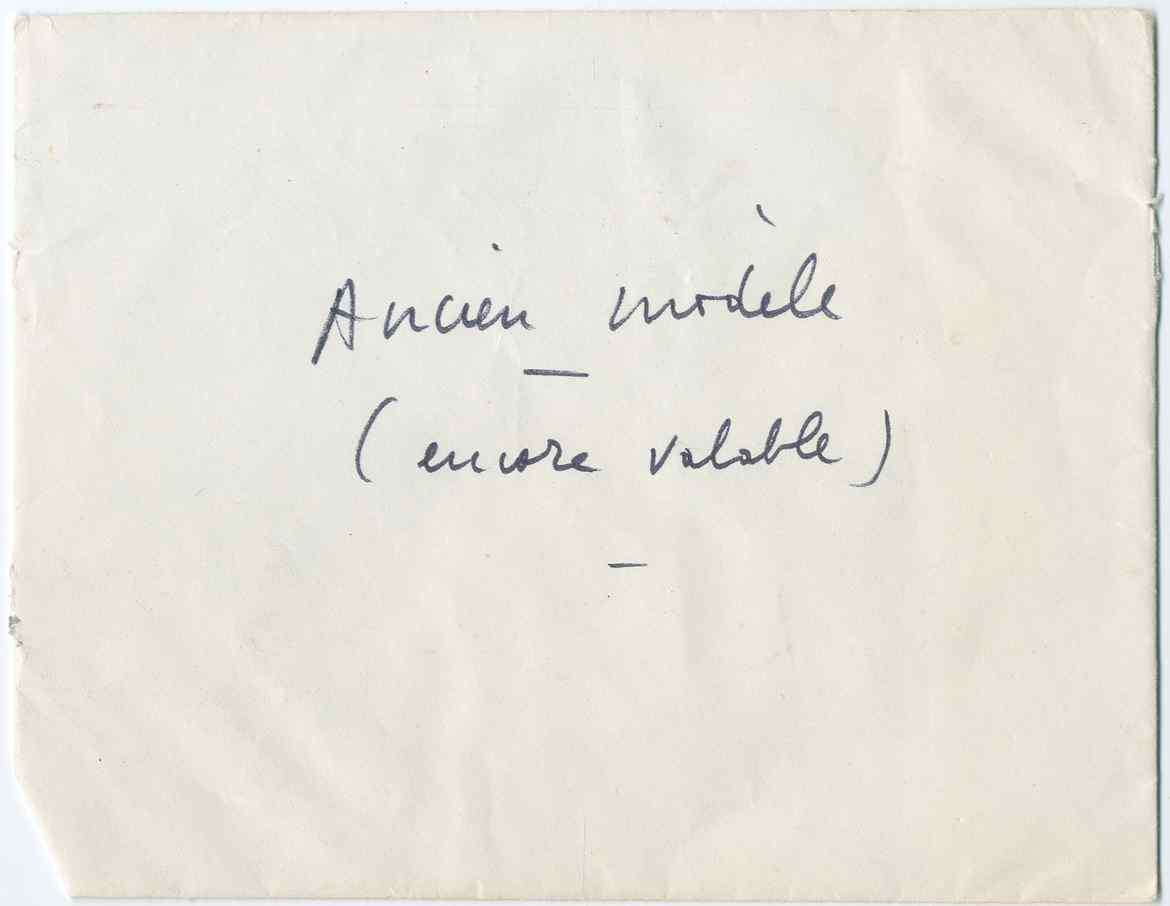 Ancien modèle
—
(encore valable)
—